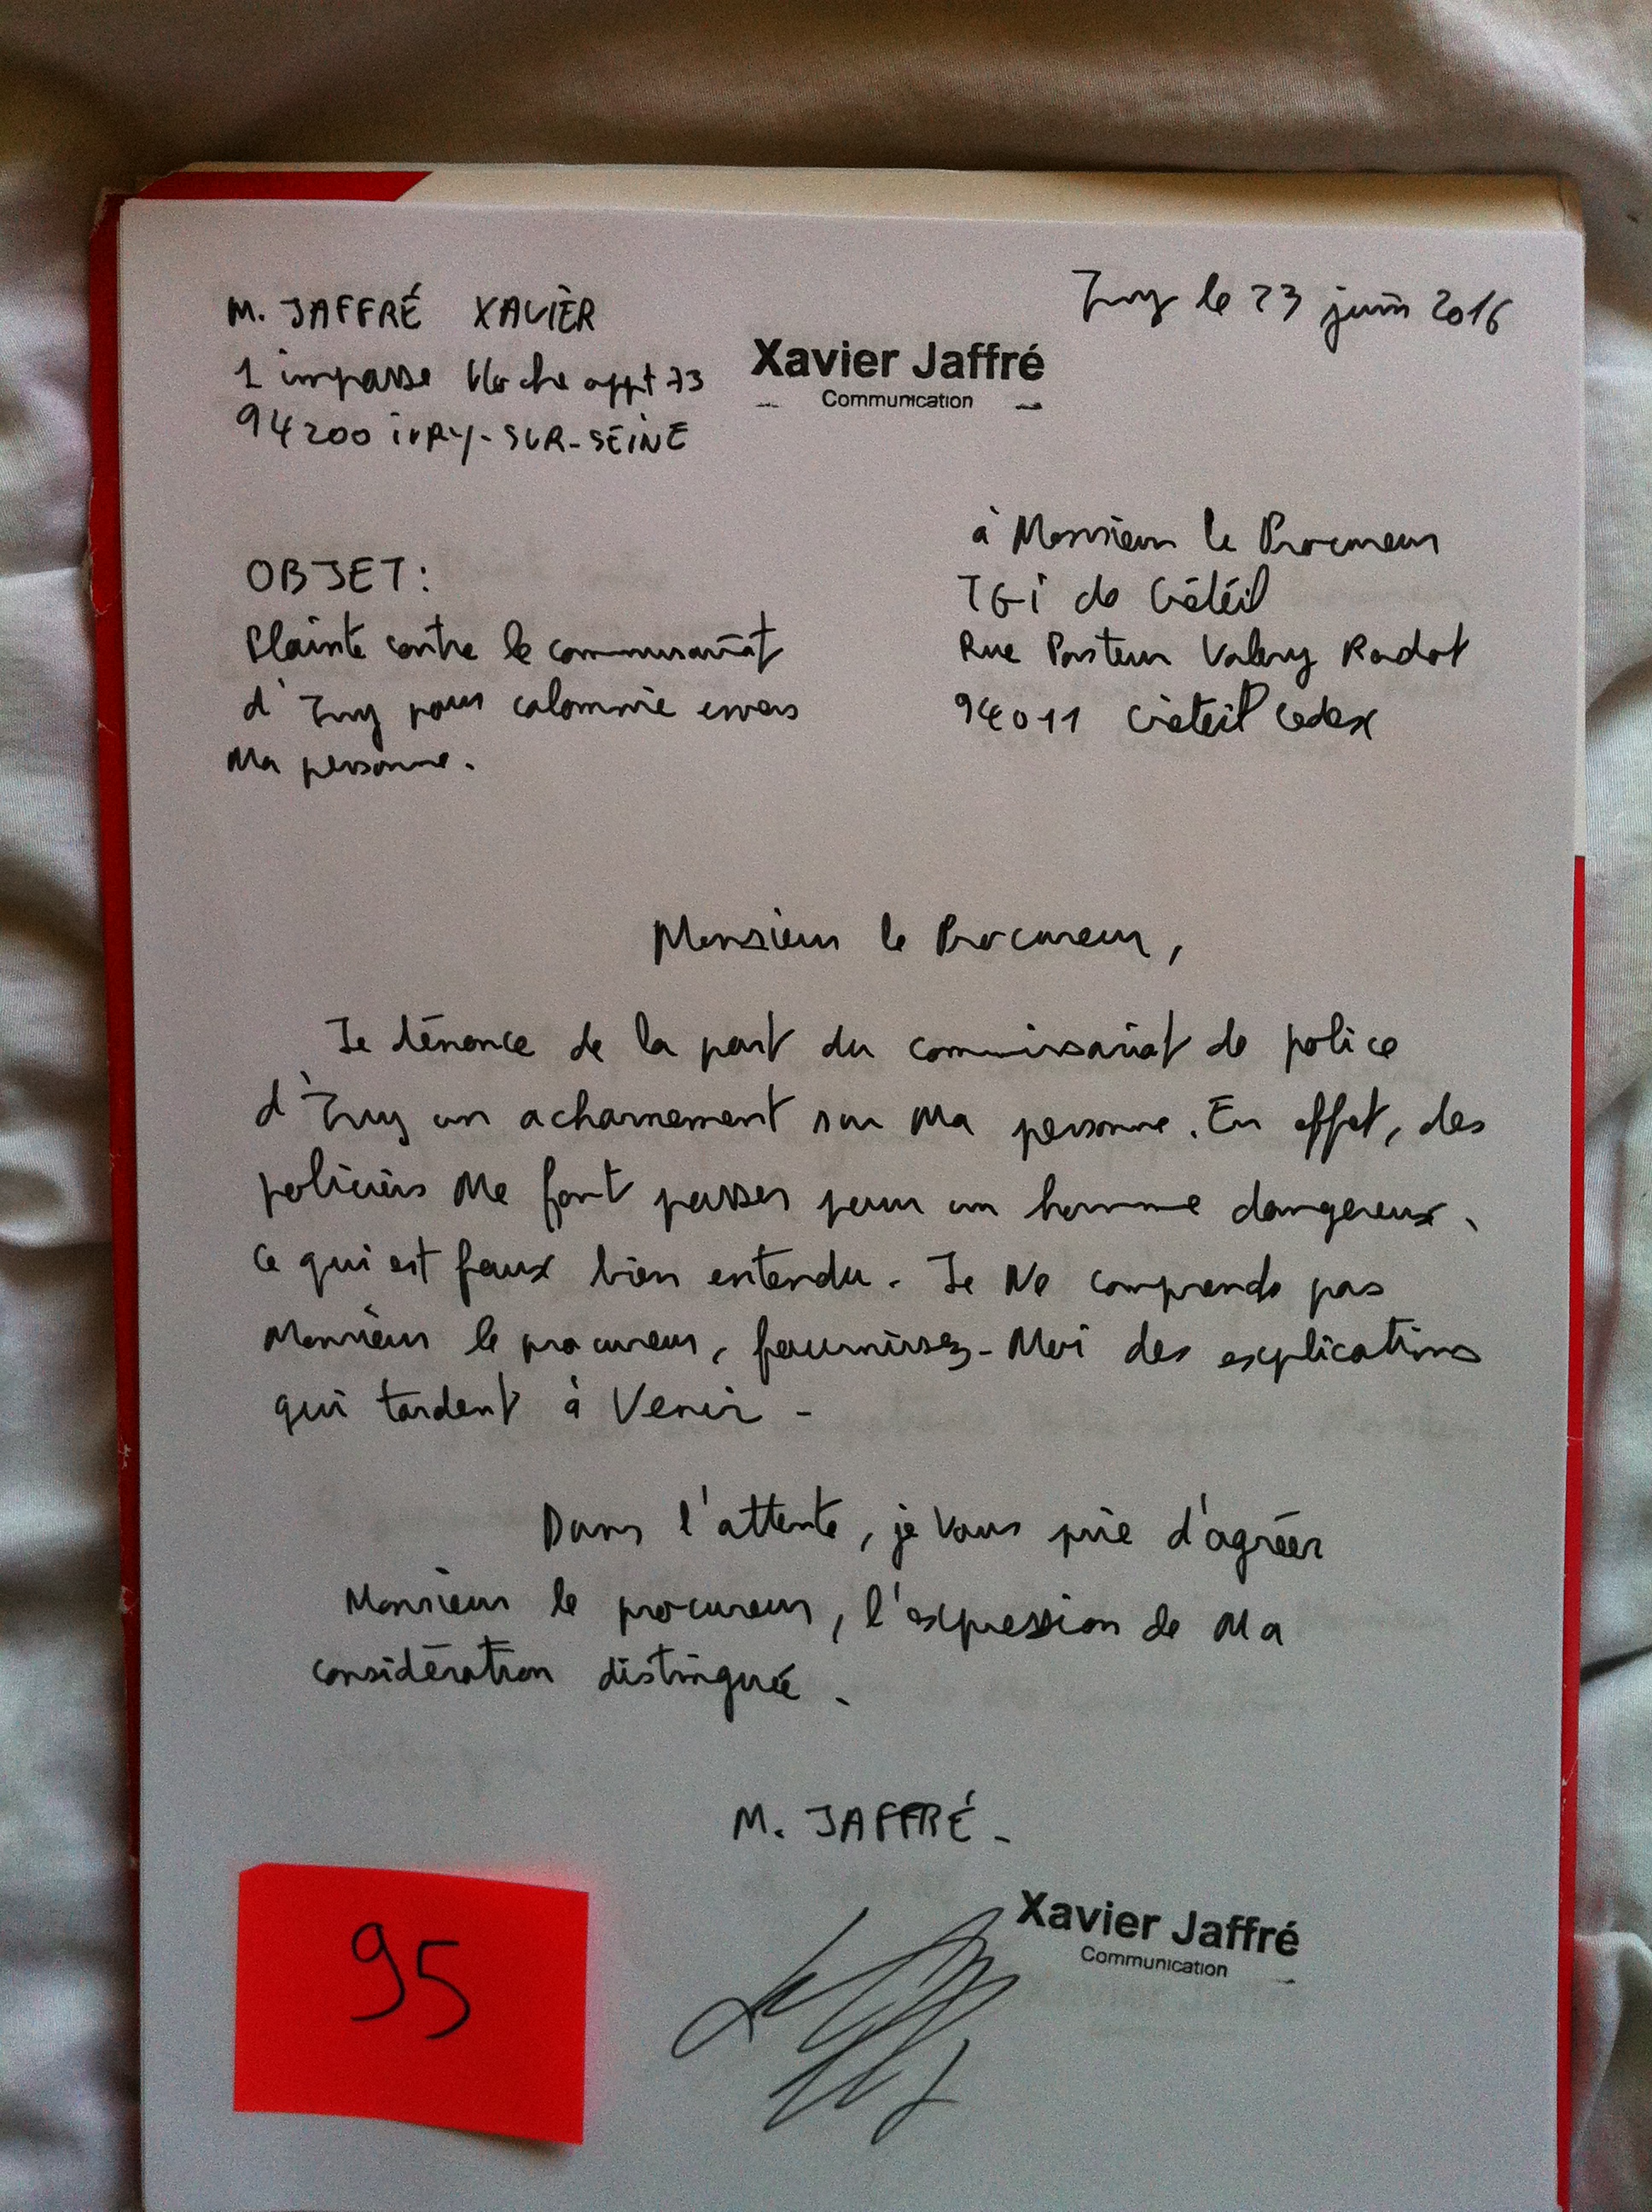 M. JAFFRÉ XAVIER
Ivry le 23 juin 2016
1 impasse Hoche appt 73
94200 IVRY-SUR-SEINE
Xavier Jaffré
Communication
OBJET:
Plainte contre le commissariat
d'Ivry pour calomnie envers
Ma personne.
à Monsieur le Procureur
TGI de Créteil
Rue Pasteur Valery Radot
94011 Créteil Cedex
Monsieur le Procureur,
Je dénonce de la part du commissariat de police
d'Ivry un acharnement sur Ma personne. En effet, des
policiers Me font passer pour un homme dangereux.
Ce qui est faux bien entendu. Je Ne comprends pas
Monsieur le procureur, fournissez-Moi des explications
qui tardent à Venir -
Dans l'attente, je Vous prie d'agréer
Monsieur le procureur, l'expression de Ma
considération distinguée.
M. JAFFRÉ -
Xavier Jaffré
Communication
95